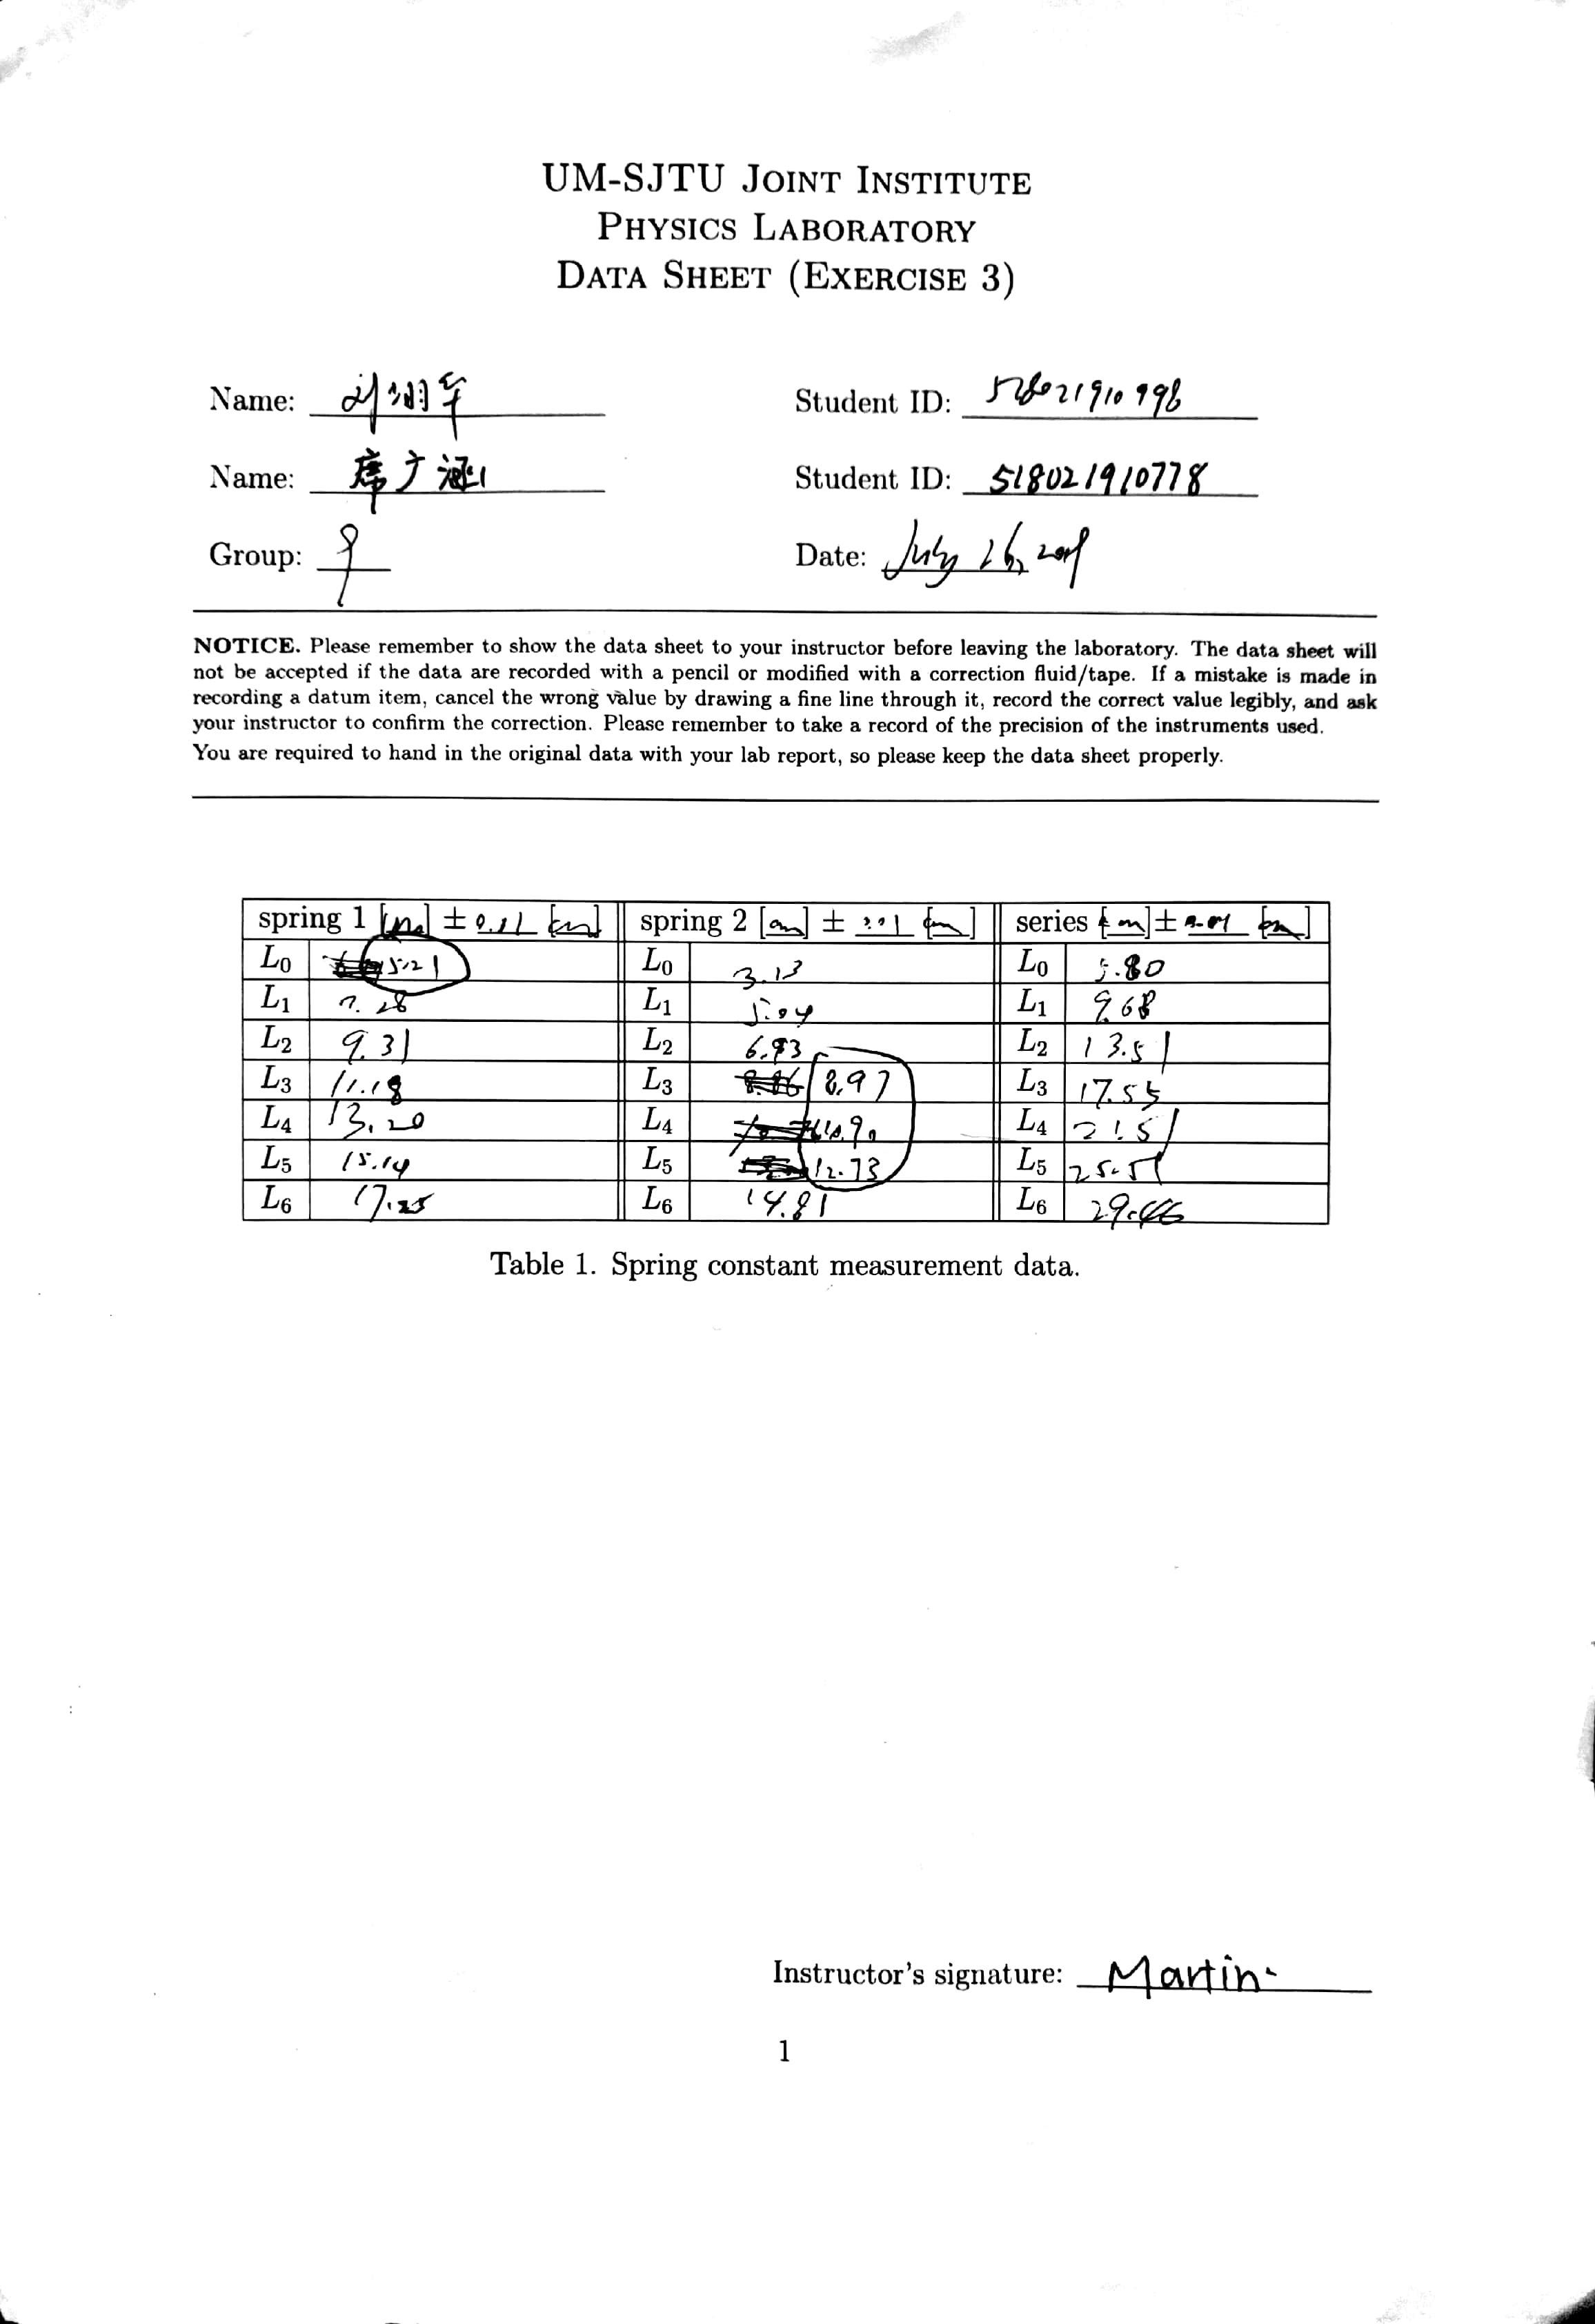 UM-SJTU JOINT INSTITUTE
PHYSICS LABORATORY
DATA SHEET (EXERCISE 3)
Name: Student ID:
Name: 席广涵 Student ID: 518021910778
Group: 9 Date: July 26, 2019
NOTICE. Please remember to show the data sheet to your instructor before leaving the laboratory. The data sheet will
not be accepted if the data are recorded with a pencil or modified with a correction fluid/tape. If a mistake is made in
recording a datum item, cancel the wrong value by drawing a fine line through it, record the correct value legibly, and ask
your instructor to confirm the correction. Please remember to take a record of the precision of the instruments used.
You are required to hand in the original data with your lab report, so please keep the data sheet properly.
spring 1 [cm] ± 0.01 [cm] spring 2 [cm] ± 0.01 [cm] series [cm] ± 0.01 [cm]
L0 5.21 L0 3.13 L0 5.80
L1 7.28 L1 5.04 L1 9.68
L2 9.31 L2 6.93 L2 13.51
L3 11.18 L3 8.97 L3 17.55
L4 13.20 L4 10.90 L4 21.51
L5 15.14 L5 12.73 L5 25.51
L6 17.25 L6 14.81 L6 29.46
Table 1. Spring constant measurement data.
Instructor's signature: Martin
1